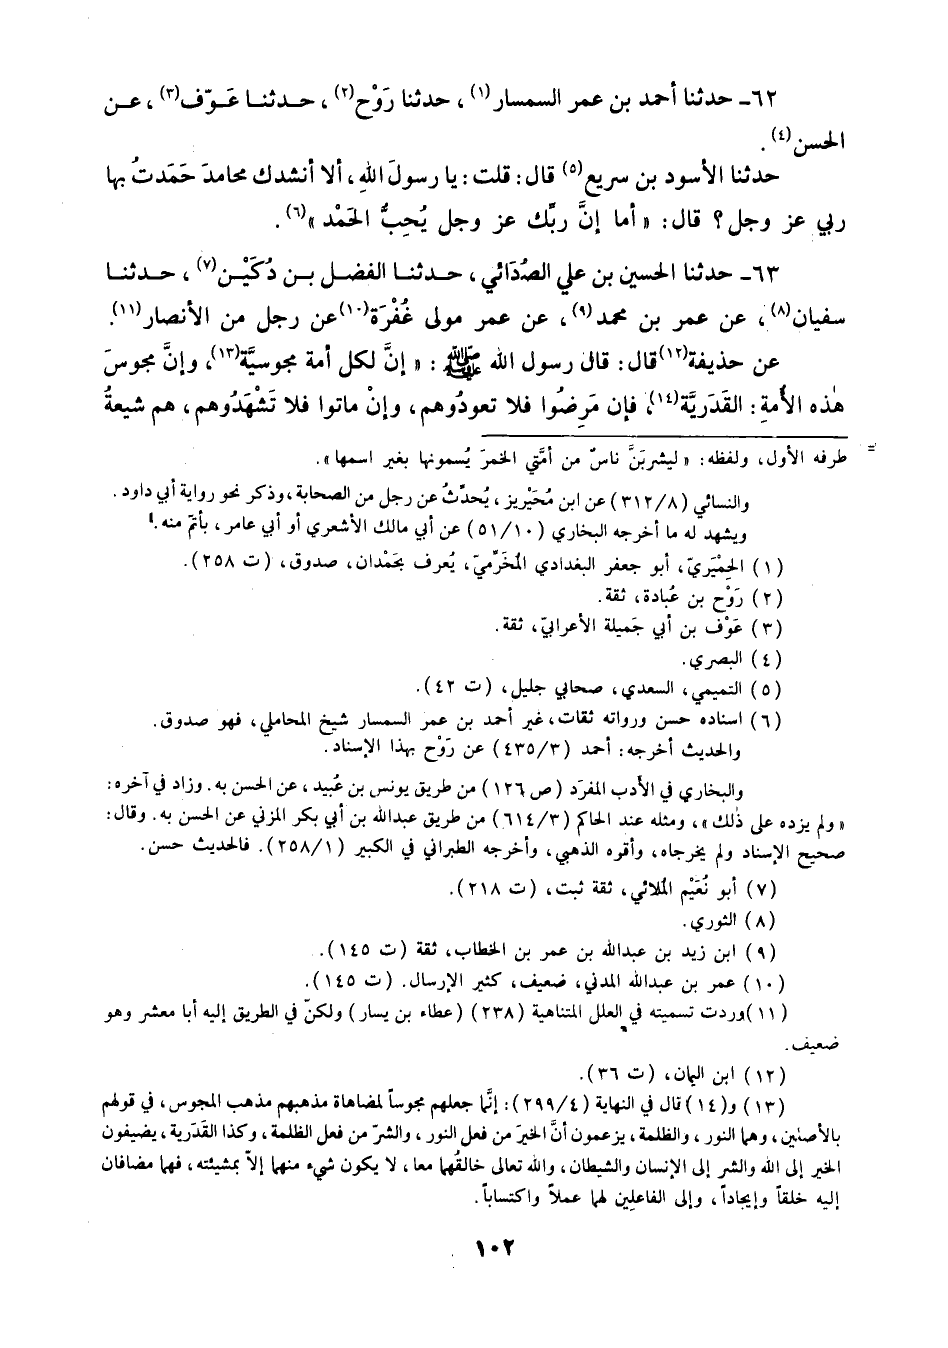 ٦٢ـ حدثنا أحمد بن عمر السمسار(١)، حدثنا رَوْح(٢)، حدثنا عَوْف(٣)، عن
الحسن(٤).
حدثنا الأسود بن سريع(٥) قال: قلت: يا رسولَ اللهِ، ألا أنشدك محامدَ حَمَدتُ بها
ربي عز وجل؟ قال: « أما إنَّ ربَّك عز وجل يُحِبُّ الحَمْد »(٦).
٦٣ـ حدثنا الحسين بن علي الصُدَائي، حدثنا الفضل بن دُكَيْن(٧)، حدثنا
سفيان(٨)، عن عمر بن محمد(٩)، عن عمر مولى غُفْرَة(١٠) عن رجل من الأنصار(١١).
عن حذيفة(١٢) قال: قال رسول الله ﷺ : « إنَّ لكل أمة مجوسيَّة(١٣)، وإنَّ مجوسَ
هٰذه الأُمةِ: القَدَريَّة(١٤)، فإن مَرِضُوا فلا تعودُوهم، وإنْ ماتوا فلا تَشْهَدُوهم، هم شيعةُ
= طرفه الأول، ولفظه: « ليشربَنَّ ناسٌ من أمَّتي الخمرَ يُسمونها بغير اسمها».
والنسائي (٣١٢/٨) عن ابن مُحَيْريز، يُحدِّثُ عن رجل من الصحابة، وذكر نحو رواية أبي داود.
ويشهد له ما أخرجه البخاري (٥١/١٠) عن أبي مالك الأشعري أو أبي عامر، بأتمّ منه.
(١) الحِمْيَريّ، أبو جعفر البغدادي المُخَرِّميّ، يُعرف بحَمْدان، صدوق، (ت ٢٥٨).
(٢) رَوْح بن عُبادة، ثقة.
(٣) عَوْف بن أبي جَميلة الأعرابيّ، ثقة.
(٤) البصري.
(٥) التميمي، السعدي، صحابي جليل، (ت ٤٢).
(٦) اسناده حسن ورواته ثقات، غير أحمد بن عمر السمسار شيخ المحاملي، فهو صدوق.
والحديث أخرجه: أحمد (٤٣٥/٣) عن رَوْح بهذا الإسناد.
والبخاري في الأدب المفرَد (ص ١٢٦) من طريق يونس بن عُبيد، عن الحسن به. وزاد في آخره:
« ولم يزده على ذٰلك»، ومثله عند الحاكم (٦١٤/٣) من طريق عبدالله بن أبي بكر المزني عن الحسن به. وقال:
صحيح الإسناد ولم يخرجاه، وأقره الذهبي، وأخرجه الطبراني في الكبير (٢٥٨/١). فالحديث حسن.
(٧) أبو نُعَيْم المُلائي، ثقة ثبت، (ت ٢١٨).
(٨) الثوري.
(٩) ابن زيد بن عبدالله بن عمر بن الخطاب، ثقة (ت ١٤٥).
(١٠) عمر بن عبدالله المدني، ضعيف، كثير الإرسال. (ت ١٤٥).
(١١) وردت تسميته في العلل المتناهية (٢٣٨) (عطاء بن يسار) ولكنّ في الطريق إليه أبا معشر وهو
ضعيف.
(١٢) ابن اليمان، (ت ٣٦).
(١٣) و(١٤) قال في النهاية (٢٩٩/٤): إنَّما جعلهم مجوساً لمضاهاة مذهبهم مذهب المجوس، في قولهم
بالأصلين، وهما النور، والظلمة، يزعمون أنَّ الخيرَ من فعل النور، والشرّ من فعل الظلمة، وكذا القَدَرية، يضيفون
الخير إلى الله والشر إلى الإنسان والشيطان، والله تعالى خالقُهما معا، لا يكون شيء منهما إلاّ بمشيئته، فهما مضافان
إليه خلقاً وإيجاداً، وإلى الفاعلِين لهما عملاً واكتساباً.
١٠٢